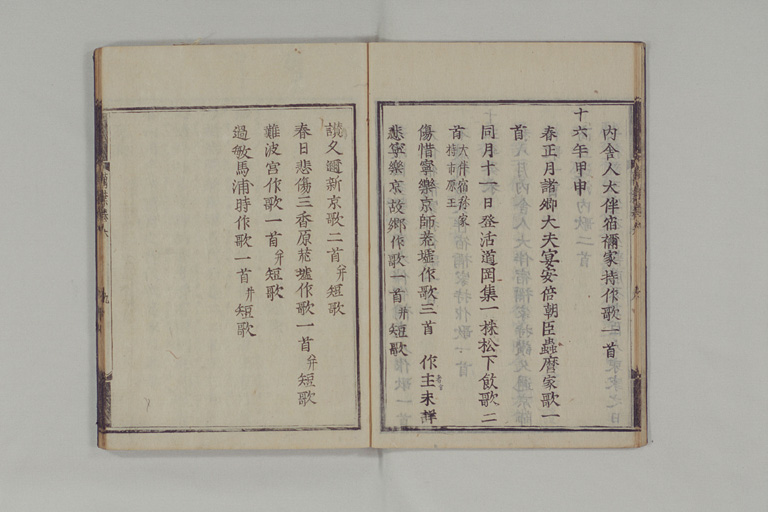 内舎人大伴宿祢家持作歌一首
十六年甲申
春正月諸卿大夫宴安倍朝臣蟲麿家歌一
首
同月十一日登活道岡集一株松下飲歌二
首 大伴宿祢家
持市原王
傷惜寧樂京師荒墟作歌三首 作主未詳
悲寧樂京故郷作歌一首并短歌
讃久邇新京歌二首并短歌
春日悲傷三香原荒墟作歌一首并短歌
難波宮作歌一首并短歌
過敏馬浦時作歌一首并短歌